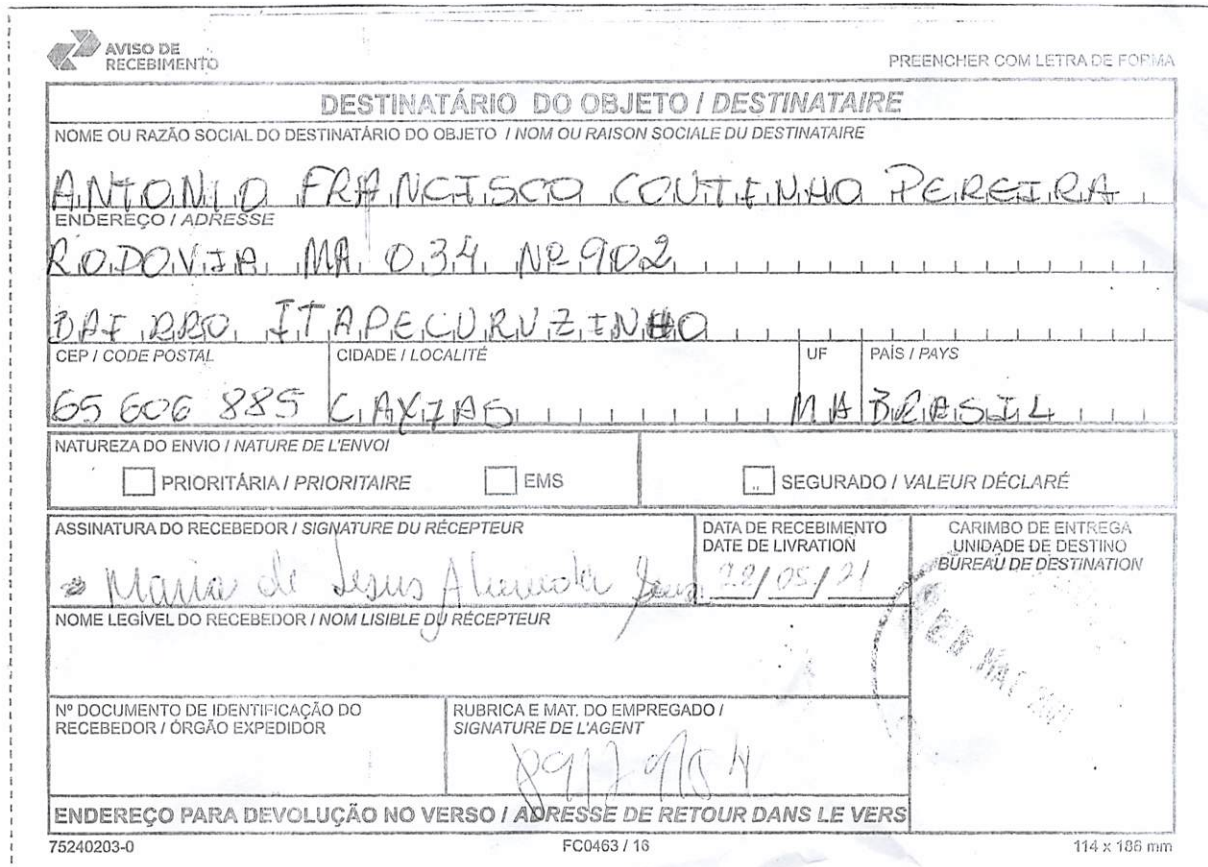 AVISO DE
RECEBIMENTO
PREENCHER COM LETRA DE FORMA
DESTINATÁRIO DO OBJETO / DESTINATAIRE
NOME OU RAZÃO SOCIAL DO DESTINATÁRIO DO OBJETO / NOM OU RAISON SOCIALE DU DESTINATAIRE
ANTONIO FRANCISCO COUTINHO PEREIRA
ENDEREÇO / ADRESSE
RODOVIA MA 034 Nº 902
BAIRRO ITAPECURUZINHO
CEP / CODE POSTAL CIDADE / LOCALITÉ UF PAÍS / PAYS
65 606 885 CAXIAS MA BRASIL
NATUREZA DO ENVIO / NATURE DE L'ENVOI
PRIORITÁRIA / PRIORITAIRE EMS SEGURADO / VALEUR DÉCLARÉ
ASSINATURA DO RECEBEDOR / SIGNATURE DU RÉCEPTEUR
Maria de Jesus Almeida
DATA DE RECEBIMENTO
DATE DE LIVRATION
22/05/21
CARIMBO DE ENTREGA
UNIDADE DE DESTINO
BUREAU DE DESTINATION
NOME LEGÍVEL DO RECEBEDOR / NOM LISIBLE DU RÉCEPTEUR
Nº DOCUMENTO DE IDENTIFICAÇÃO DO
RECEBEDOR / ÓRGÃO EXPEDIDOR
RUBRICA E MAT. DO EMPREGADO /
SIGNATURE DE L'AGENT
ENDEREÇO PARA DEVOLUÇÃO NO VERSO / ADRESSE DE RETOUR DANS LE VERS
75240203-0 FC0463 / 16 114 x 186 mm